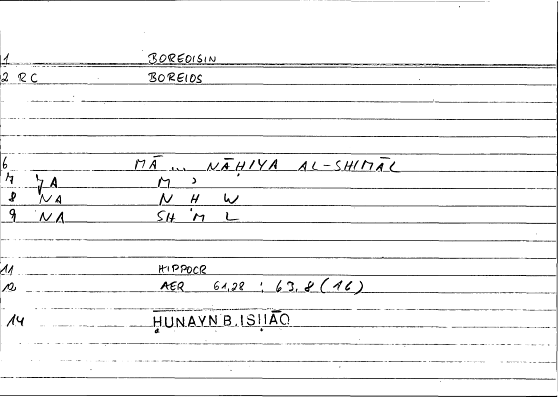 1 BOREOISIN
2 RC BOREIOS
6 MĀ ... NĀḤIYA AL-SHIMĀL
7 YA M ʾ
8 NA N Ḥ W
9 NA SH M L
11 HIPPOCR
12 AER 61,28 : 63,8 (16)
14 ḤUNAYN B. ISḤĀQ